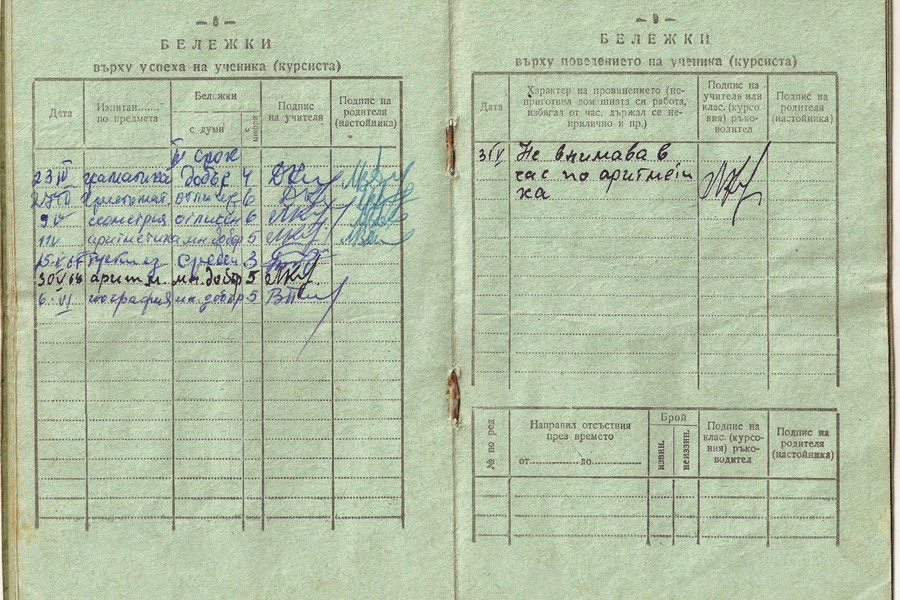 — 8 —
БЕЛЕЖКИ
върху успеха на ученика (курсиста)
Дата
Изпитан.......
по предмета
Бележки
с думи
с цифри
Подпис
на учителя
Подпис на
родителя
(настойника)
IV срок
23 IV граматика добър 4
отличен 6
9 V геометрия отличен 6
11 V аритметика мн. добър 5
среден 3
30 V 68 аритм. мн. добър 5
6. VI география мн. добър 5
— 9 —
БЕЛЕЖКИ
върху поведението на ученика (курсиста)
Дата
Характер на провинението (не-
приготвил домашната си работа,
избягал от час, държал се не-
прилично и пр.)
Подпис на
учителя или
клас. (курсо-
вия) ръко-
водител
Подпис на
родителя
(настойника)
3 IV Не внимава в
час по аритмети
ка
№ по ред
Направил отсъствия
през времето
от............до............
Брой
извин.
неизвин.
Подпис на
клас. (курсо-
вия) ръко-
водител
Подпис на
родителя
(настойника)